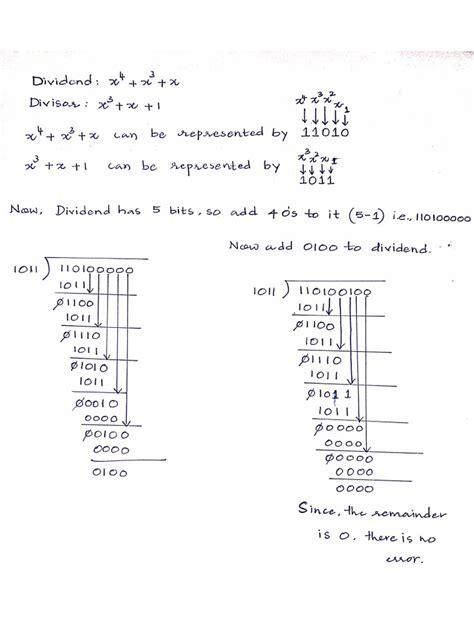 Dividend: x⁴ + x³ + x
Divisor: x³ + x + 1
x⁴ x³ x² x 1
↓ ↓ ↓ ↓ ↓
x⁴ + x³ + x can be represented by 11010
x³ x² x 1
↓ ↓ ↓ ↓
x³ + x + 1 can be represented by 1011
Now, Dividend has 5 bits, so add 4 0's to it (5-1) i.e., 110100000
Now add 0100 to dividend.
1011 ) 110100000
1011
01100
1011
01110
1011
01010
1011
00010
0000
00100
0000
0100
1011 ) 110100100
1011
01100
1011
01110
1011
01011
1011
00000
0000
00000
0000
0000
Since, the remainder
is 0. there is no
error.